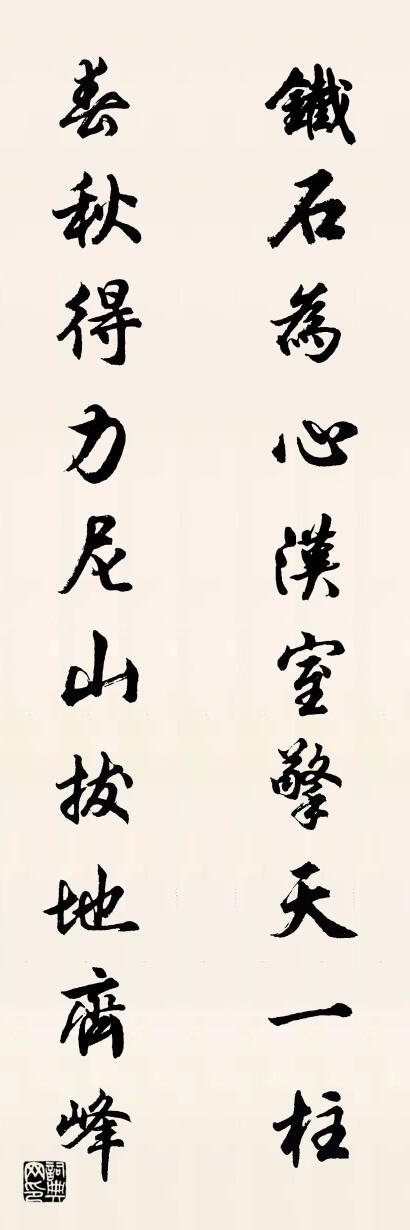 鐵石為心漢室擎天一柱
春秋得力尼山拔地齊峰
詞典網印